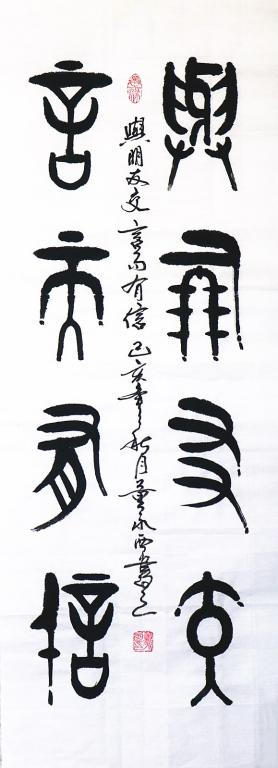 與朋友交
言而有信
與朋友交言而有信己亥年秋月董永西書之